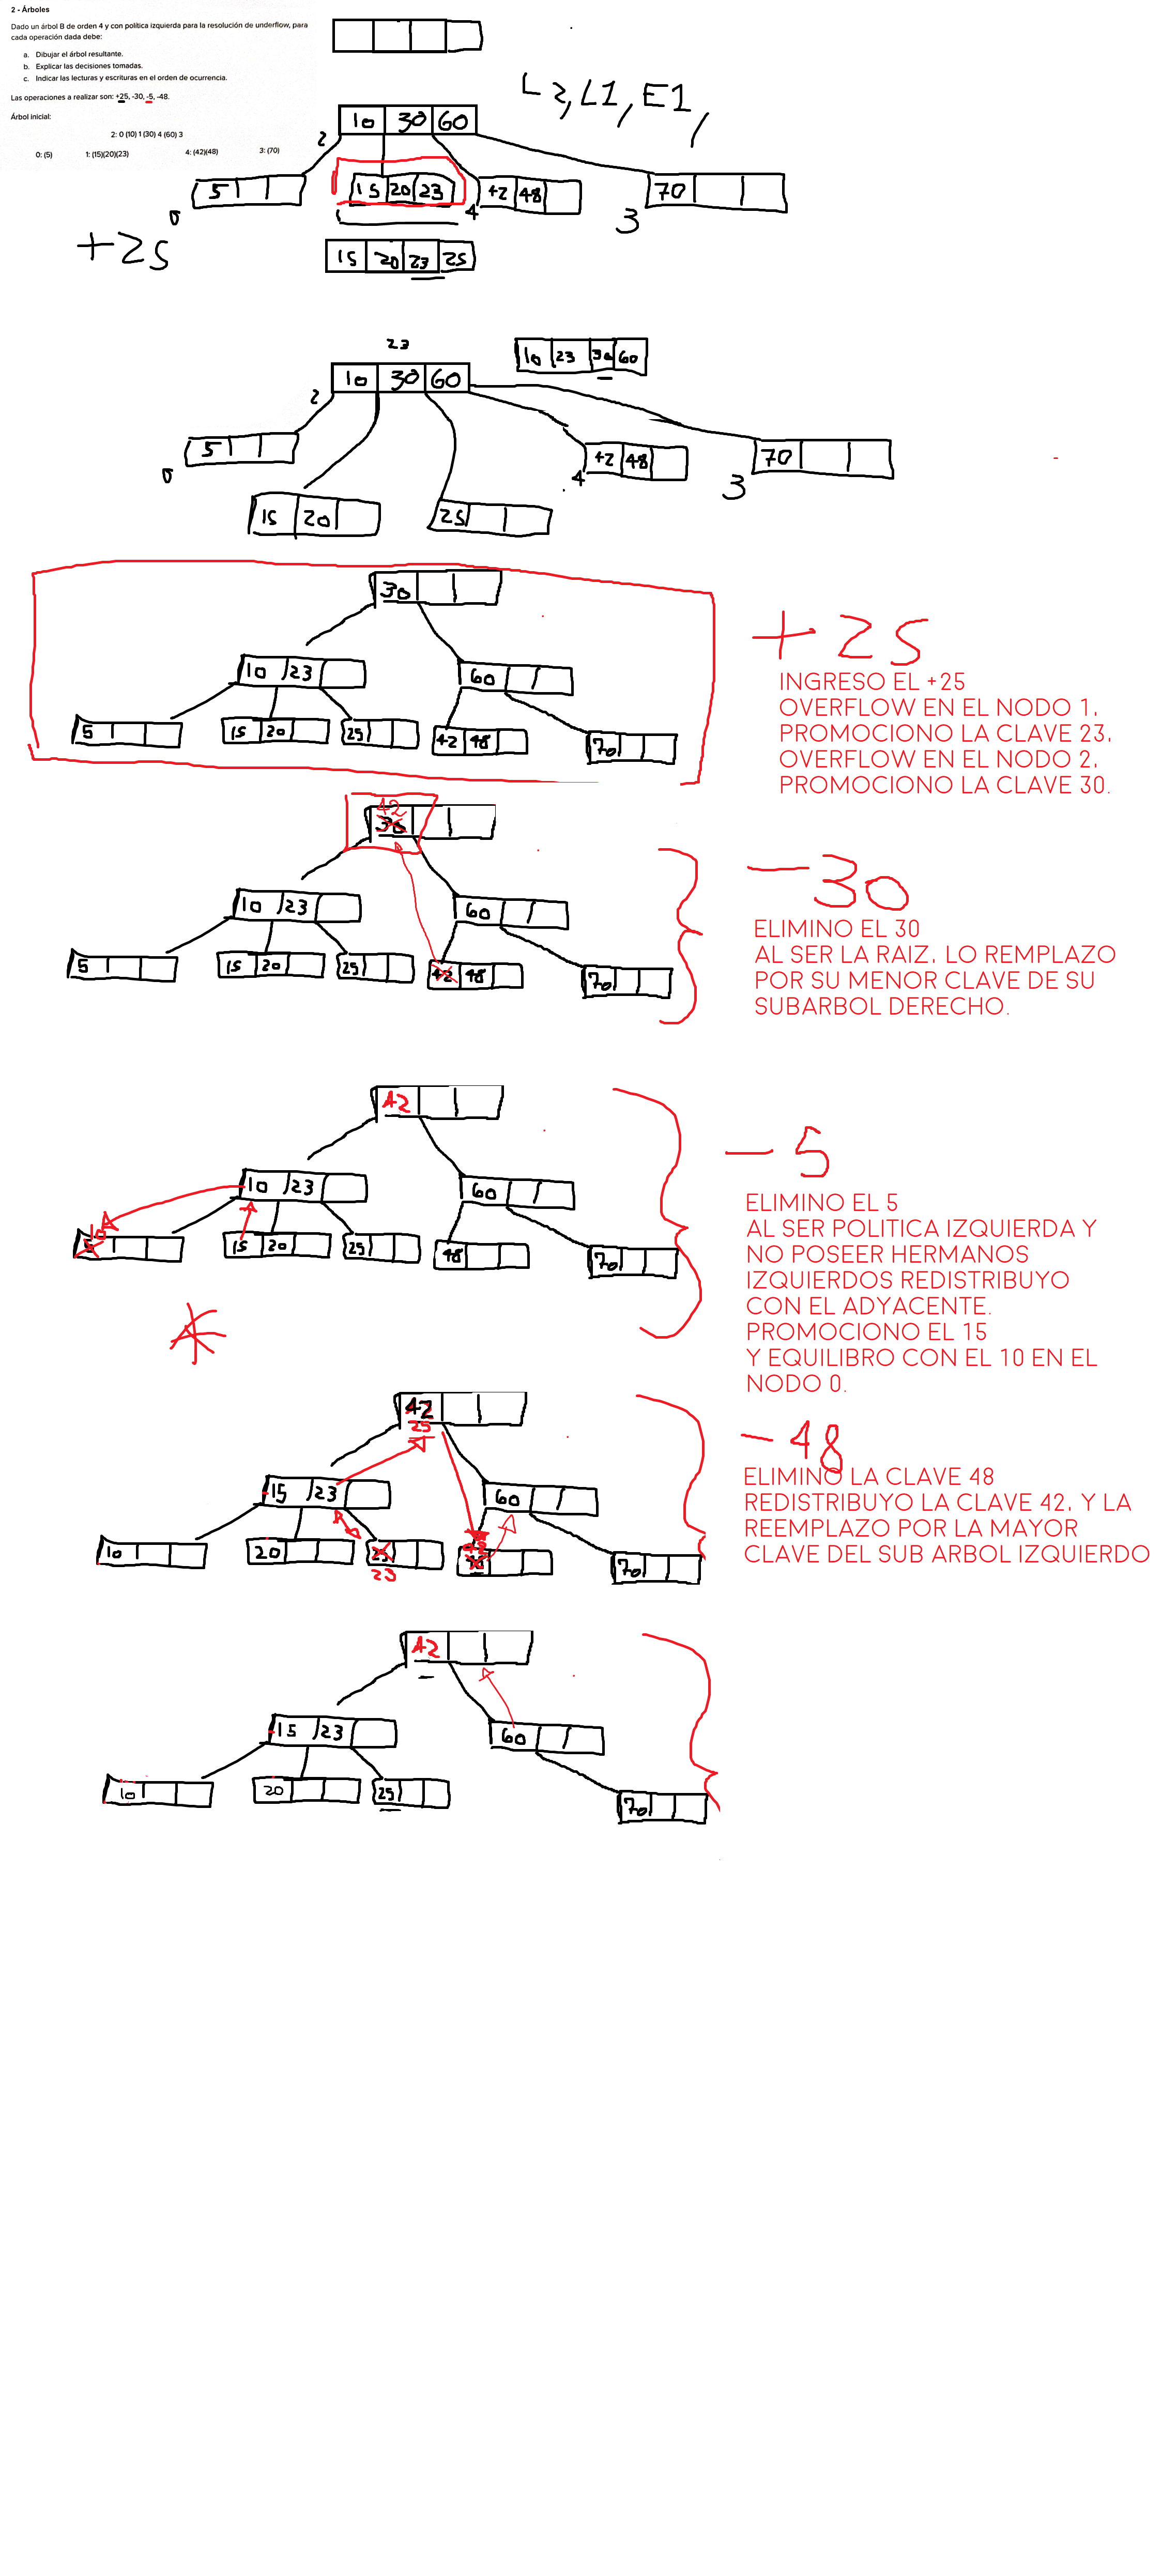 2 - Árboles
Dado un árbol B de orden 4 y con política izquierda para la resolución de underflow, para
cada operación dada debe:
a. Dibujar el árbol resultante.
b. Explicar las decisiones tomadas.
c. Indicar las lecturas y escrituras en el orden de ocurrencia.
Las operaciones a realizar son: +25, -30, -5, -48.
Árbol inicial:
2: 0 (10) 1 (30) 4 (60) 3
0: (5) 1: (15)(20)(23) 4: (42)(48) 3: (70)
L2, L1, E1,
10 30 60
2
5 15 20 23 42 48 70
0 4 3
+25
15 20 23 25
23
10 23 30 60
10 30 60
2
5 42 48 70
0 4 3
15 20 25
30
10 23 60
5 15 20 25 42 48 70
+25
INGRESO EL +25
OVERFLOW EN EL NODO 1,
PROMOCIONO LA CLAVE 23,
OVERFLOW EN EL NODO 2,
PROMOCIONO LA CLAVE 30.
42
30
10 23 60
5 15 20 25 42 48 70
-30
ELIMINO EL 30
AL SER LA RAIZ, LO REMPLAZO
POR SU MENOR CLAVE DE SU
SUBARBOL DERECHO.
42
10 23 60
10
5 15 20 25 48 70
-5
ELIMINO EL 5
AL SER POLITICA IZQUIERDA Y
NO POSEER HERMANOS
IZQUIERDOS REDISTRIBUYO
CON EL ADYACENTE.
PROMOCIONO EL 15
Y EQUILIBRO CON EL 10 EN EL
NODO 0.
42
25
15 23 60
10 20 25 70
23
-48
ELIMINO LA CLAVE 48
REDISTRIBUYO LA CLAVE 42, Y LA
REEMPLAZO POR LA MAYOR
CLAVE DEL SUB ARBOL IZQUIERDO
42
15 23 60
10 20 25 70